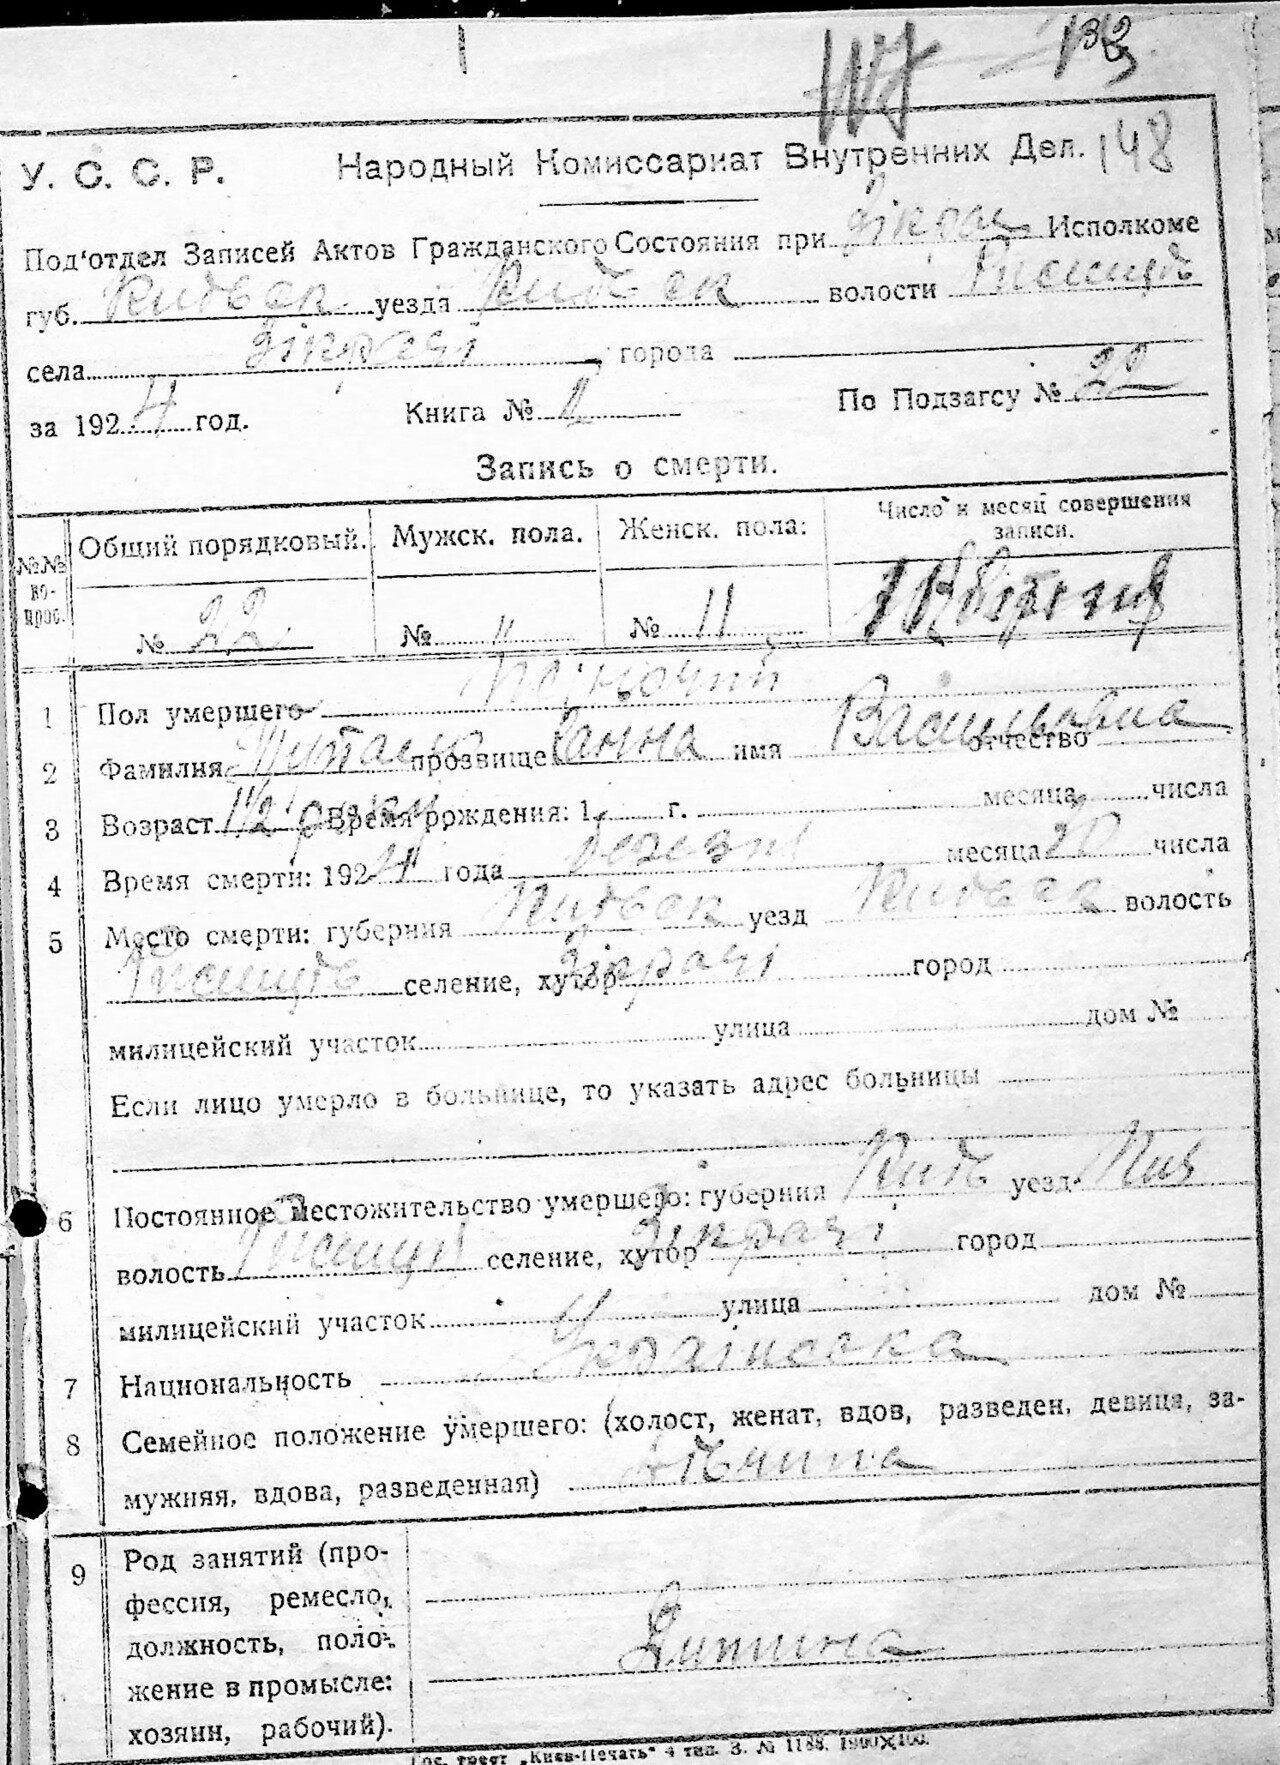 148
У. С. С. Р. Народный Комиссариат Внутренних Дел.
Под'отдел Записей Актов Гражданского Состояния при Зікрач Исполкоме
губ. уезда волости
села Зікрачі города
за 1924 год. Книга № По Подзагсу № 22
Запись о смерти.
№№ вопрос. Общий порядковый. Мужск. пола. Женск. пола: Число и месяц совершения записи.
№ 22 № " № 11 1 Квітня
1 Пол умершего Жіночий
2 Фамилия прозвище Ганна имя Васильевна отчество
3 Возраст 1½ року Время рождения: 1 г. месяца числа
4 Время смерти: 1924 года березня месяца 20 числа
5 Место смерти: губерния уезд волость
селение, хутор Зікрачі город
милицейский участок улица дом №
Если лицо умерло в больнице, то указать адрес больницы
6 Постоянное местожительство умершего: губерния уезд
волость селение, хутор Зікрачі город
милицейский участок улица дом №
7 Национальность Українська
8 Семейное положение умершего: (холост, женат, вдов, разведен, девица, за-
мужняя, вдова, разведенная) дівчина
9 Род занятий (про-
фессия, ремесло,
должность, поло-
жение в промысле:
хозяин, рабочий).
Дитина
Гос. трест „Киев-Печать" 4 тип. З. № 1188. 1900×100.